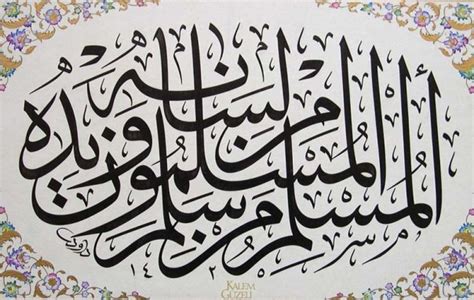 المسلم من سلم المسلمون من لسانه ويده
KALEM
GÜZELİ